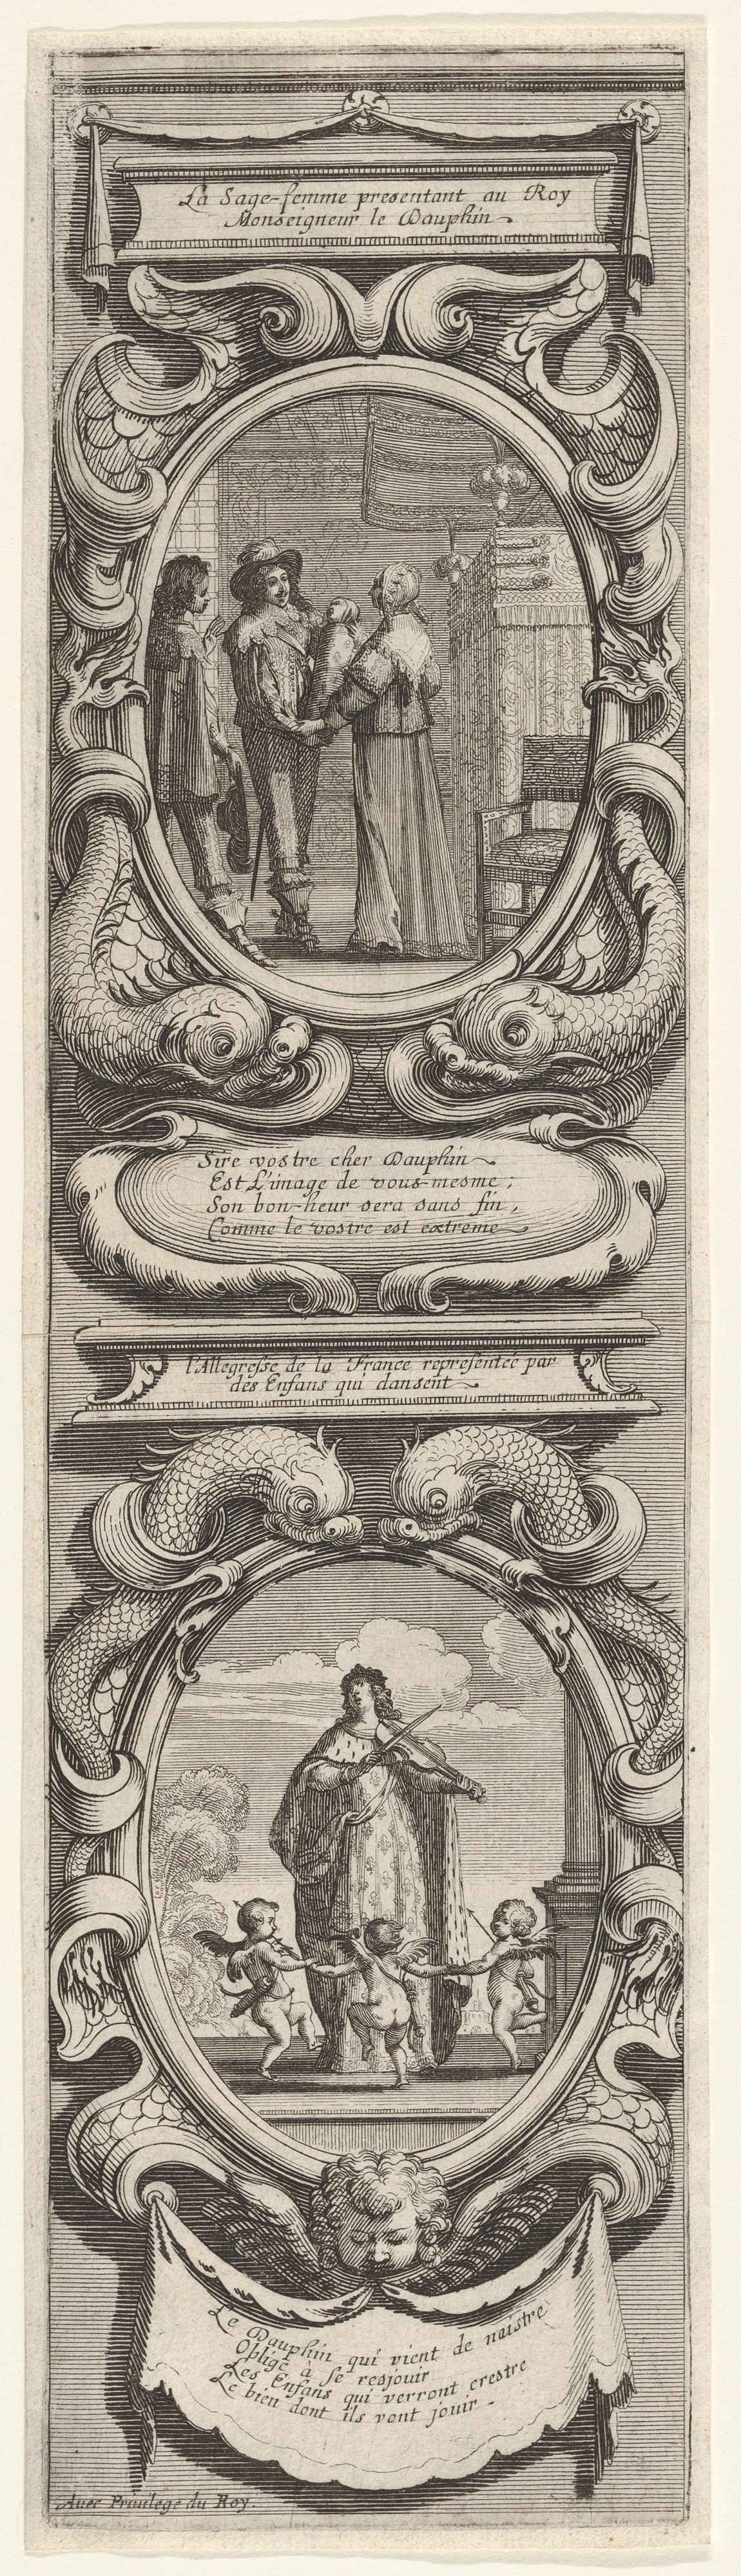 La Sage-femme presentant au Roy
Monseigneur le Dauphin
Sire vostre cher Dauphin
Est L'image de vous-mesme;
Son bon-heur sera sans fin,
Comme le vostre est extreme
l'Allegresse de la France representée par
des Enfans qui dansent
Le Dauphin qui vient de naistre
Oblige à se resjouir
Les Enfans qui verront crestre
Le bien dont ils vont jouir.
Avec Privilege du Roy.